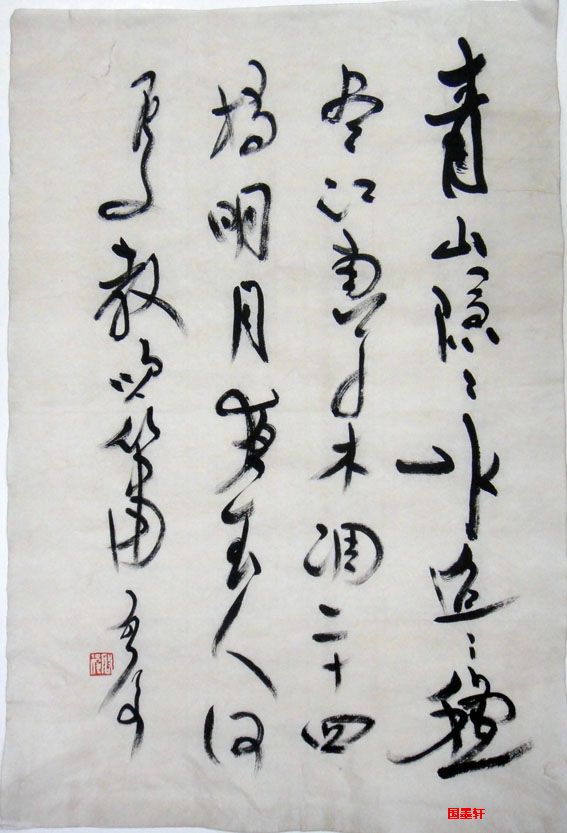 青山隐々水迢々穐
尽江南草木凋二十四
橋明月夜玉人何
處教吹箫
国墨轩